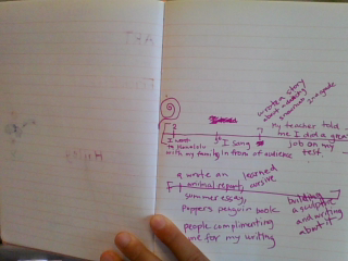 wrote a story
about a
in 2nd grade
My teacher told
me I did a great
job on my
test.
I went
to
with my family
I sang
in front of audience
wrote an
animal report,
learned
cursive
summer essay,
Poppers penguin book
people complimenting
me for my writing
building
a sculpture
and writing
about it